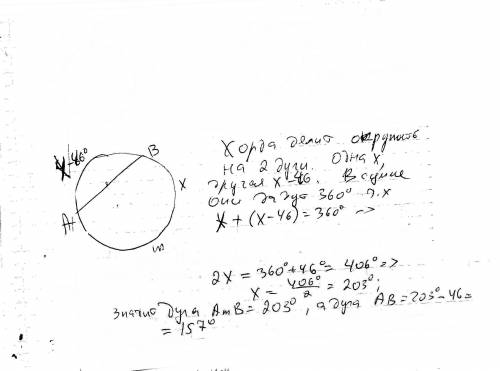 X-46°
B
X
A
m
Хорда делит окружность
на 2 дуги. Одна х,
другая х-46. В сумме
они дадут 360° т.к
X + (X-46) = 360° =>
2X = 360°+46° = 406° =>
X = 406°/2 = 203°;
Значит дуга AmB = 203°, а дуга AB = 203°-46=
= 157°